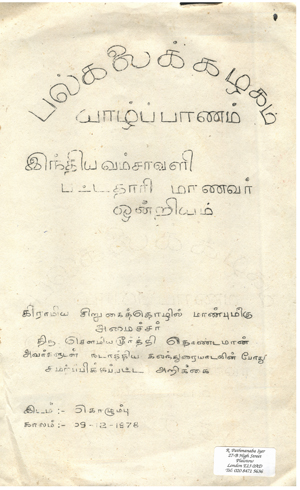 பல்கலைக்கழகம்
யாழ்ப்பாணம்
இந்தியவம்சாவளி
பட்டதாரி மாணவர்
ஒன்றியம்
கிராமிய சிறுகைத்தொழில் மாண்புமிகு
அமைச்சர்
திரு சௌமியமூர்த்தி தொண்டமான்
அவர்களுடன் நடாத்திய கலந்துரையாடலின் போது
சமர்ப்பிக்கப்பட்ட அறிக்கை
இடம் :- கொழும்பு
காலம் :- 09-12-1978
R. Pathmanaba Iyer
27-B High Street
Plaistow
London E13 0AD
Tel: 020 8471 5636